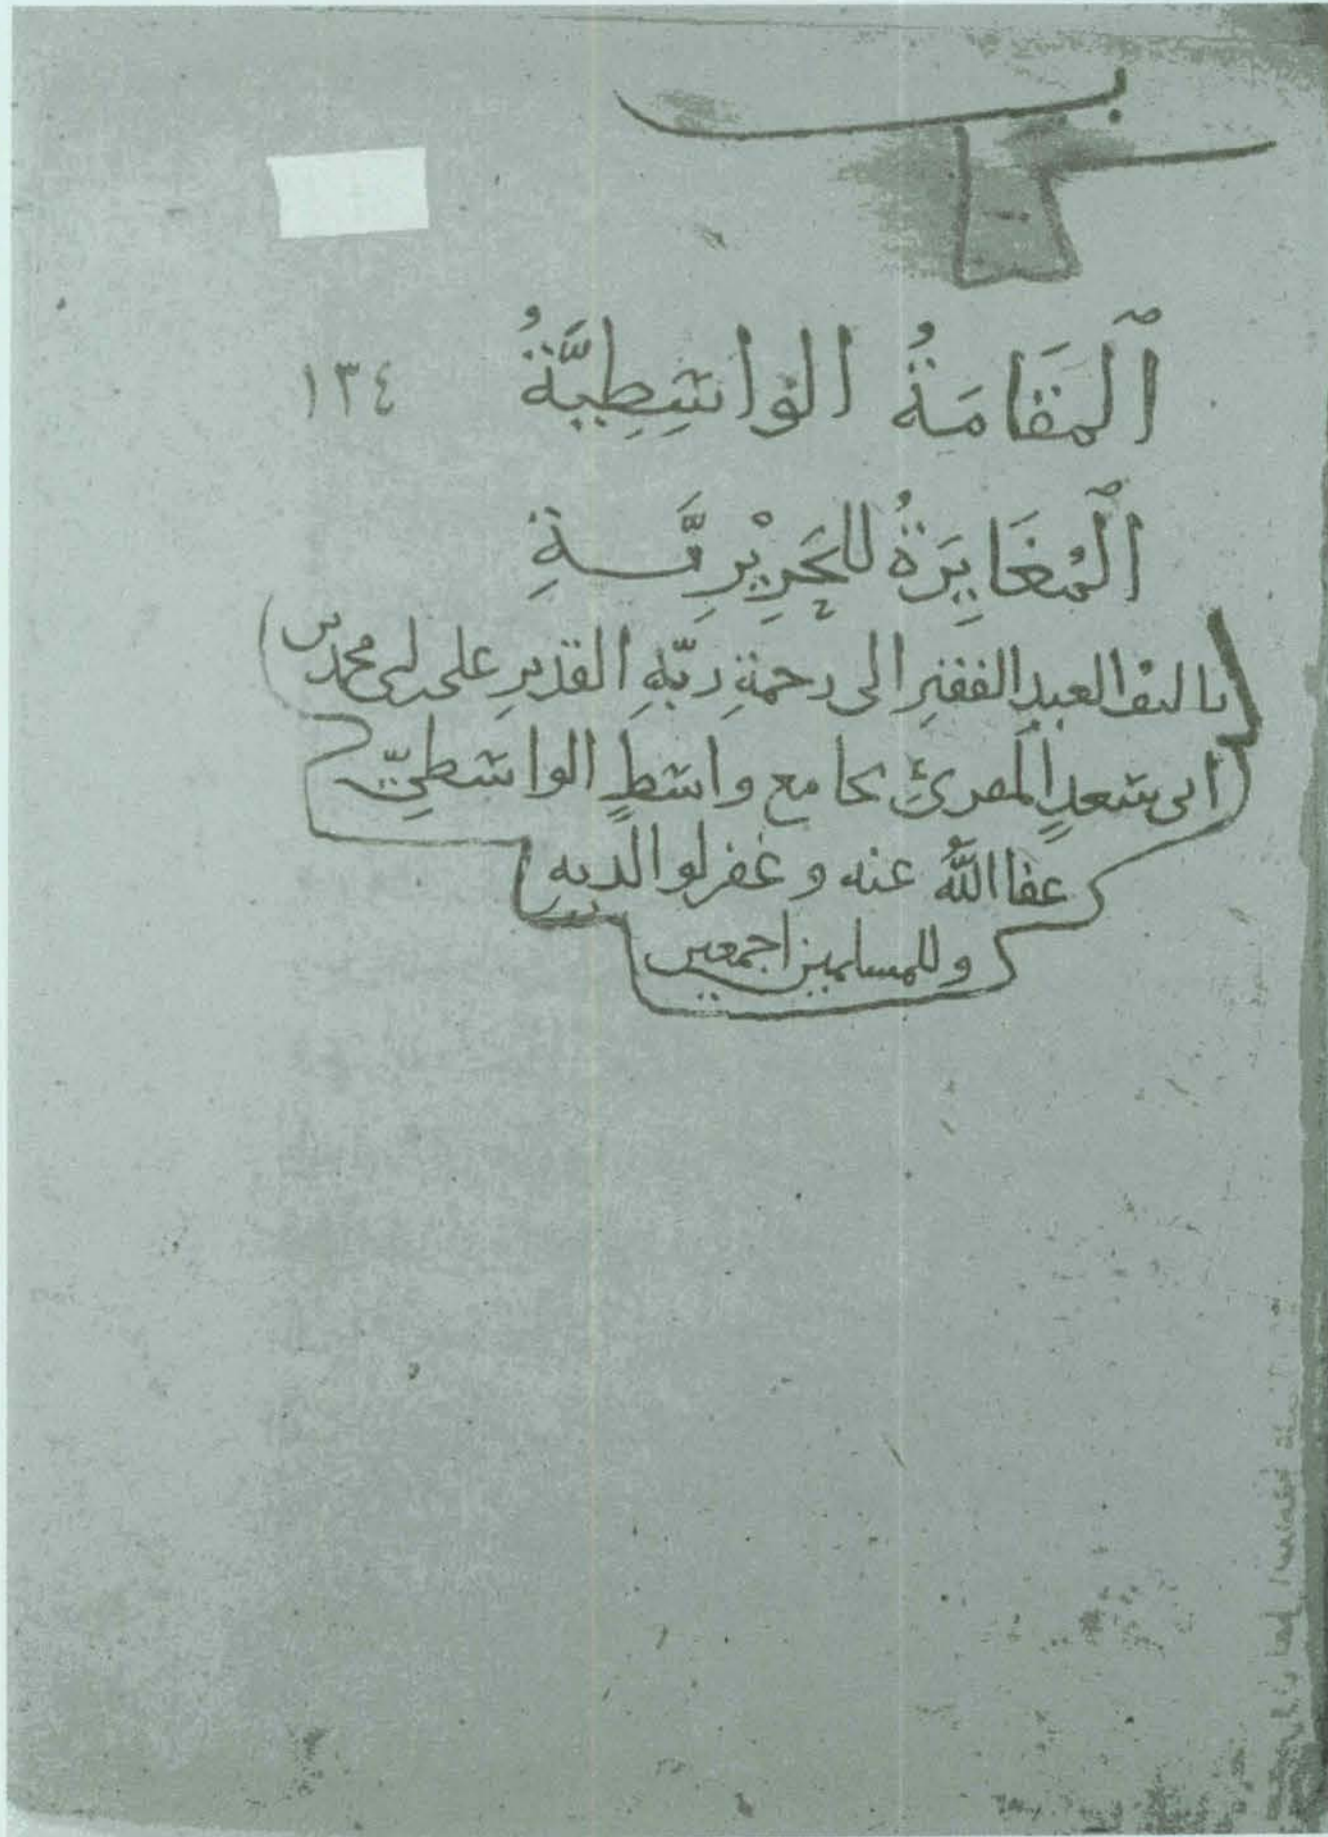 اَلْمَقَامَةُ الوَاسِطِيَّةُ ١٣٤
اَلْمُغَايِرَةُ للحَرِيْرِيَّةِ
تاليف العبدِ الفقيرِ الى رحمةِ ربّهِ القديرِ على بن محمد بن
ابى سعدٍ المقرئِ بجامع واسطٍ الواسطيّ
عفا اللهُ عنه وغفر لوالديه
وللمسلمين اجمعين